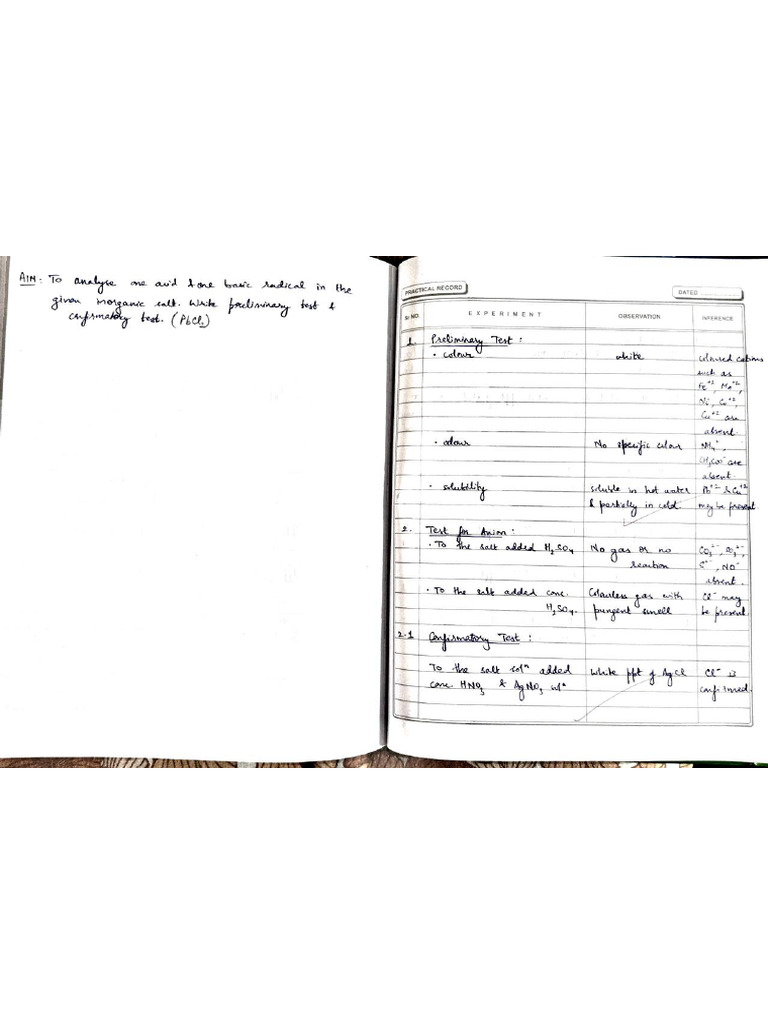 AIM: To analyse one acid & one basic radical in the
given inorganic salt. Write preliminary test &
confirmatory test. (PbCl₂)
PRACTICAL RECORD
DATED
Sr NO. EXPERIMENT OBSERVATION INFERENCE
1. Preliminary Test :
• colour white coloured cations
such as
Fe⁺², Mn⁺²,
Ni, Co⁺²,
Cu⁺² are
absent.
• odour No specific odour NH₄⁺,
CH₃COO⁻ are
absent.
• solubility soluble in hot water Pb⁺² & Cu⁺²
& partially in cold. may be present
2. Test for Anion :
• To the salt added H₂SO₄ No gas or no CO₃²⁻, SO₃²⁻,
reaction S²⁻, NO⁻
absent.
• To the salt added conc. Colourless gas with Cl⁻ may
H₂SO₄. pungent smell be present.
2.1 Confirmatory Test :
To the salt solⁿ added White ppt of AgCl Cl⁻ is
conc. HNO₃ & AgNO₃ solⁿ confirmed.